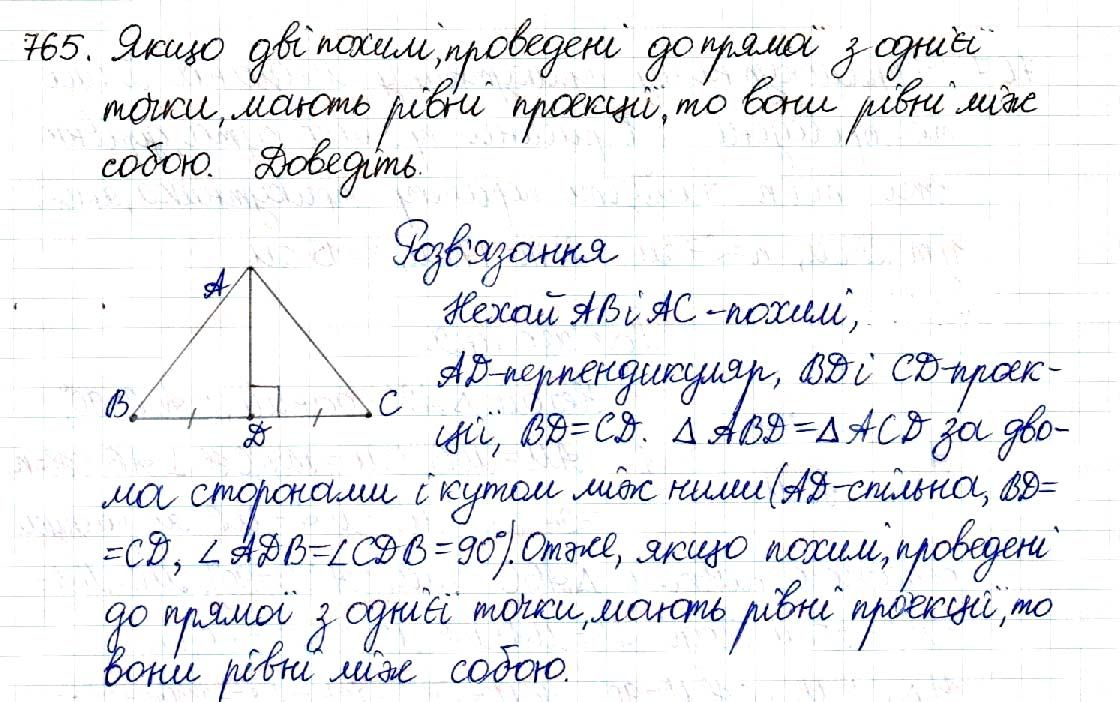 765. Якщо дві похилі, проведені до прямої з однієї
точки, мають рівні проекції, то вони рівні між
собою. Доведіть.
Розв'язання
A
Нехай AB і AC - похилі,
AD - перпендикуляр, BD і CD - проек-
B
D
C
ції, BD = CD. △ ABD = △ ACD за дво-
ма сторонами і кутом між ними (AD - спільна, BD =
= CD, ∠ ADB = ∠ CDB = 90°). Отже, якщо похилі, проведені
до прямої з однієї точки, мають рівні проекції, то
вони рівні між собою.